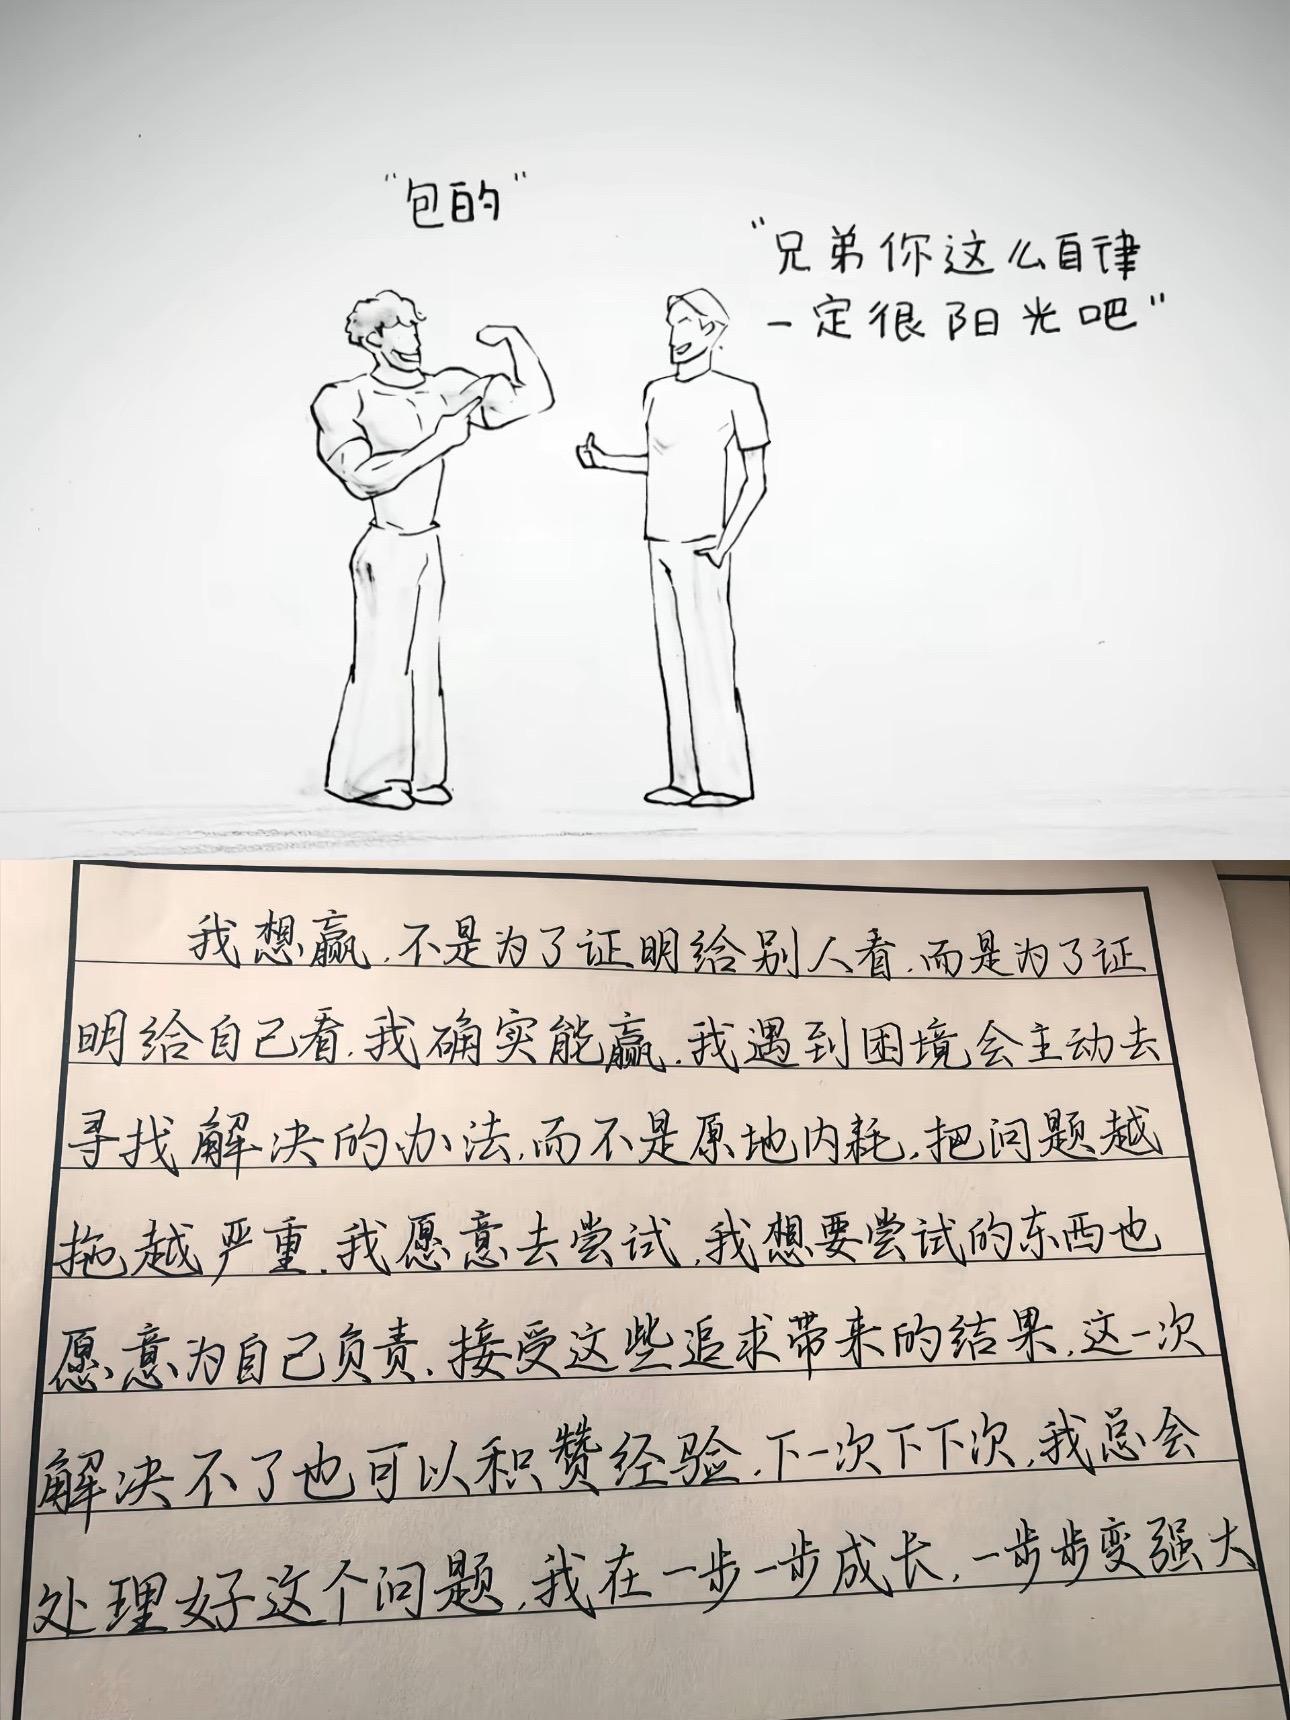 "包的"
"兄弟你这么自律
一定很阳光吧"
我想赢,不是为了证明给别人看,而是为了证
明给自己看,我确实能赢,我遇到困境会主动去
寻找解决的办法,而不是原地内耗,把问题越
拖越严重,我愿意去尝试,我想要尝试的东西也
愿意为自己负责,接受这些追求带来的结果,这一次
解决不了也可以积赞经验,下一次下下次,我总会
处理好这个问题,我在一步一步成长,一步步变强大